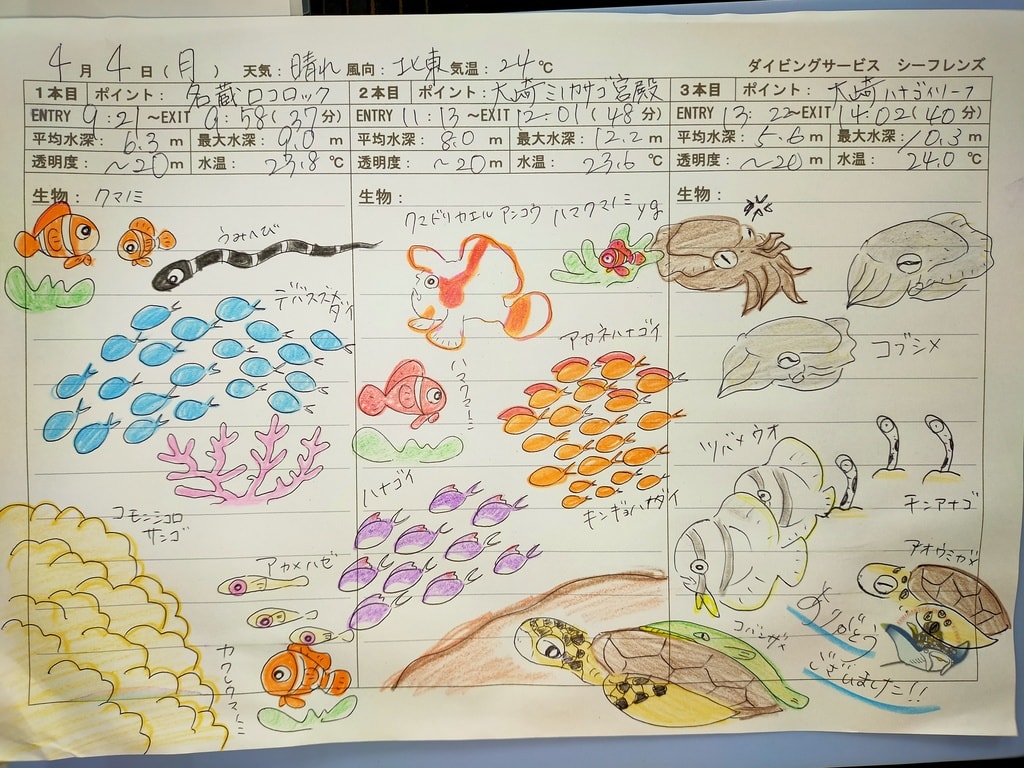 4月4日(月) 天気:晴れ 風向:北東 気温:24℃ ダイビングサービス シーフレンズ
1本目 ポイント:名蔵ロコロック
ENTRY 9:21~EXIT 9:58(37分)
平均水深:6.3m 最大水深:9.0m
透明度:~20m 水温:23.8℃
生物:
クマノミ
うみへび
デバスズメダイ
コモンシコロサンゴ
アカメハゼ
カクレクマノミ
2本目 ポイント:大崎ミノカサゴ宮殿
ENTRY 11:13~EXIT 12:01(48分)
平均水深:8.0m 最大水深:12.2m
透明度:~20m 水温:23.6℃
生物:
クマドリカエルアンコウ
ハマクマノミyg
アカネハナゴイ
ハマクマノミ
ハナゴイ
キンギョハナダイ
コバンザメ
3本目 ポイント:大崎ハナゴイリーフ
ENTRY 13:22~EXIT 14:02(40分)
平均水深:5.6m 最大水深:10.3m
透明度:~20m 水温:24.0℃
生物:
コブシメ
ツバメウオ
チンアナゴ
アオウミガメ
ありがとう
ございました!!